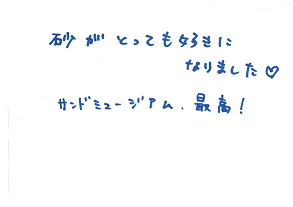 砂がとっても好きに
なりました♡
サンドミュージアム、最高!